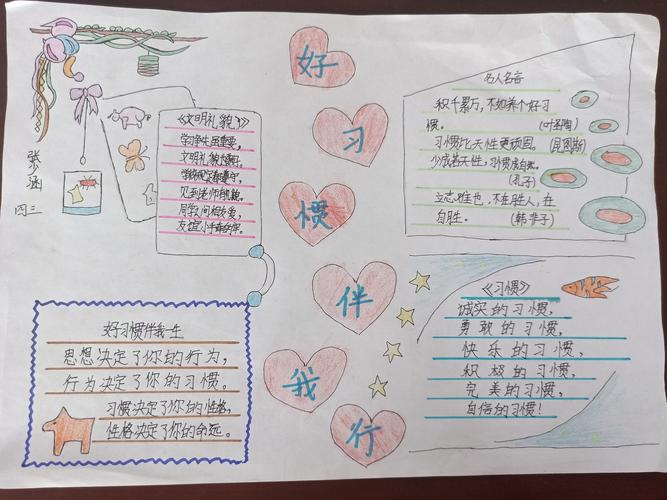 好
习
惯
伴
我
行
张少涵
四三
《文明礼貌》
学习争先最重要,
文明礼貌
见到老师
同学之间相友爱,
友谊小手牵
名人名言
积千累万,不如养个好习
惯。 (叶圣陶)
习惯比天性更顽固。(昆图斯)
少成若天性,习惯成自然。
(孔子)
立志难也,不在胜人,在
自胜。 (韩非子)
好习惯伴我一生
思想决定了你的行为,
行为决定了你的习惯。
习惯决定了你的性格,
性格决定了你的命远。
《习惯》
诚实的习惯,
勇敢的习惯,
快乐的习惯,
积极的习惯,
完美的习惯,
自信的习惯!